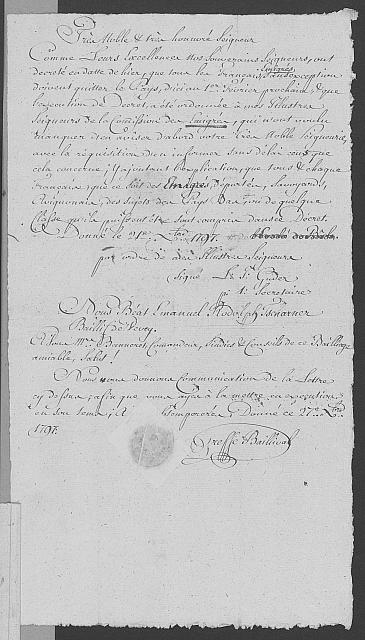 Très Noble & très honnoré Seigneur
Comme Leurs Excellences Nos Souverains Seigneurs, ont
decreté en datte de hier, que tous les Français Emigrés sans exception
doivent quitter le Pays, d'ici au 1er Fevrier prochain, & que
l'execution du Decret, a été ordonnée à nos Illustres
Seigneurs de la Comission des Emigrés, qui n'ont voulu
manquer d'en aviser d'abord votre très Noble Seigneurie,
avec la réquisition d'en informer sans délai ceux que
cela concerne; Y ajoutant l'explication, que tous & chaque
Français, que ce soit des Emigrés, déportés, Savoyards,
Avignonais, des sujets des Pays Bas, ou de quelque
Classe qu'ils puissent être sont compris dans ce Décret.
Donné le 21e Xbre 1797.
par ordre de dits Illustres Seigneurs
signé Le Sr. Gruber
pr. Secretaire
Nous Béat Emanuel Rodolph Tscharner
Baillif de Vevey
A Vous Mrs. Bannerets, Comandeurs, Sindics & Conseils de ce Bailliage
amiable, Salut!
Nous vous donnons Communication de la Lettre
cy dessus, afin que vous ayez à la mettre en execution
en son tems; Donné ce 27e Xbre
1797.
Greffe Baillival